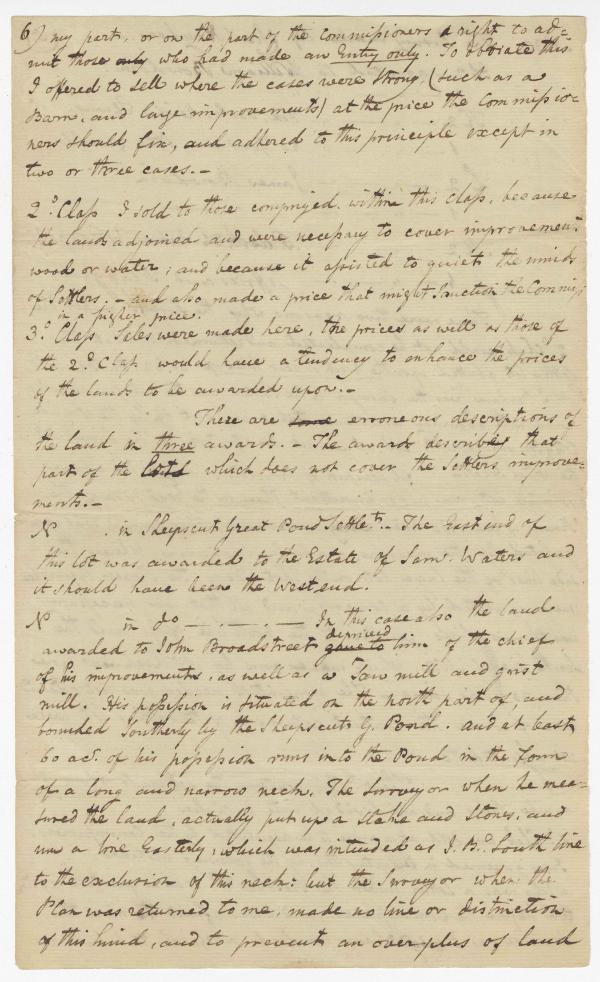 6) my part, or on the part of the Commissioners a right to ad=
mit those only who had made an Entry only. To obviate this
I offered to sell where the cases were strong, (such as a
Barn, and large improvements) at the price the Commissio=
ners should fix, and adhered to this principle except in
two or three cases.-
2.d Class I sold to those comprised within this class, because
the lands adjoined and were necessary to cover improvements
wood or water; and because it assisted to quiet the minds
of Settlers. - and also made a price that might Sanction the Commiss
in a higher price.
3.d Class Sales were made here, the prices as well as those of
the 2.d Class would have a tendency to enhance the prices
of the lands to be awarded upon.-
There are some erroneous descriptions of
the land in three awards. - The awards describing that
part of the lots which does not cover the Settlers improve=
ments.-
N . in Sheepscut Great Pond Settlet. - The East end of
this lot was awarded to the Estate of Sam. Waters and
it should have been the West end.
N in do - . - . - . - In this case also the land
deprived
awarded to John Broadstreet gave to him of the chief
of his improvements, as well as a Saw mill and grist
mill. His possession is situated on the north part of, and
bounded Southerly by the Sheepscuts G. Pond. and at least
60 acs. of his possession runs into the Pond in the form
of a long and narrow neck. The Surveyor when he mea=
sured the land, actually put up a Stake and Stones, and
run a line Easterly, which was intended as J. B.s South line
to the exclusion of this neck: but the Surveyor when the
Plan was returned to me, made no line or distinction
of this kind, and to prevent an over plus of land